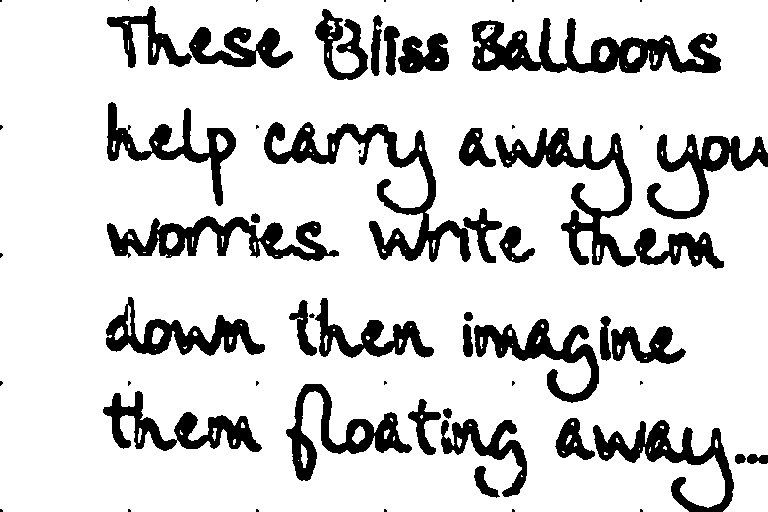 These Bliss Balloons
help carry away you
worries. Write them
down then imagine
them floating away...